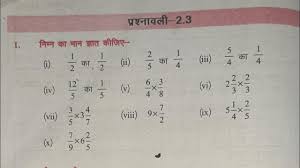 प्रश्नावली–2.3
1. निम्न का मान ज्ञात कीजिए–
(i) 1/2 का 1/2 (ii) 2/5 का 1/4 (iii) 5/4 का 1/4
(iv) 12/5 का 1/5 (v) 6/4 × 3/8 (vi) 2 2/3 × 2/3
(vii) 3/5 × 3 4/7 (viii) 9 × 7/2 (ix) 5 1/4 × 2/5
(x) 7/9 × 6 2/5